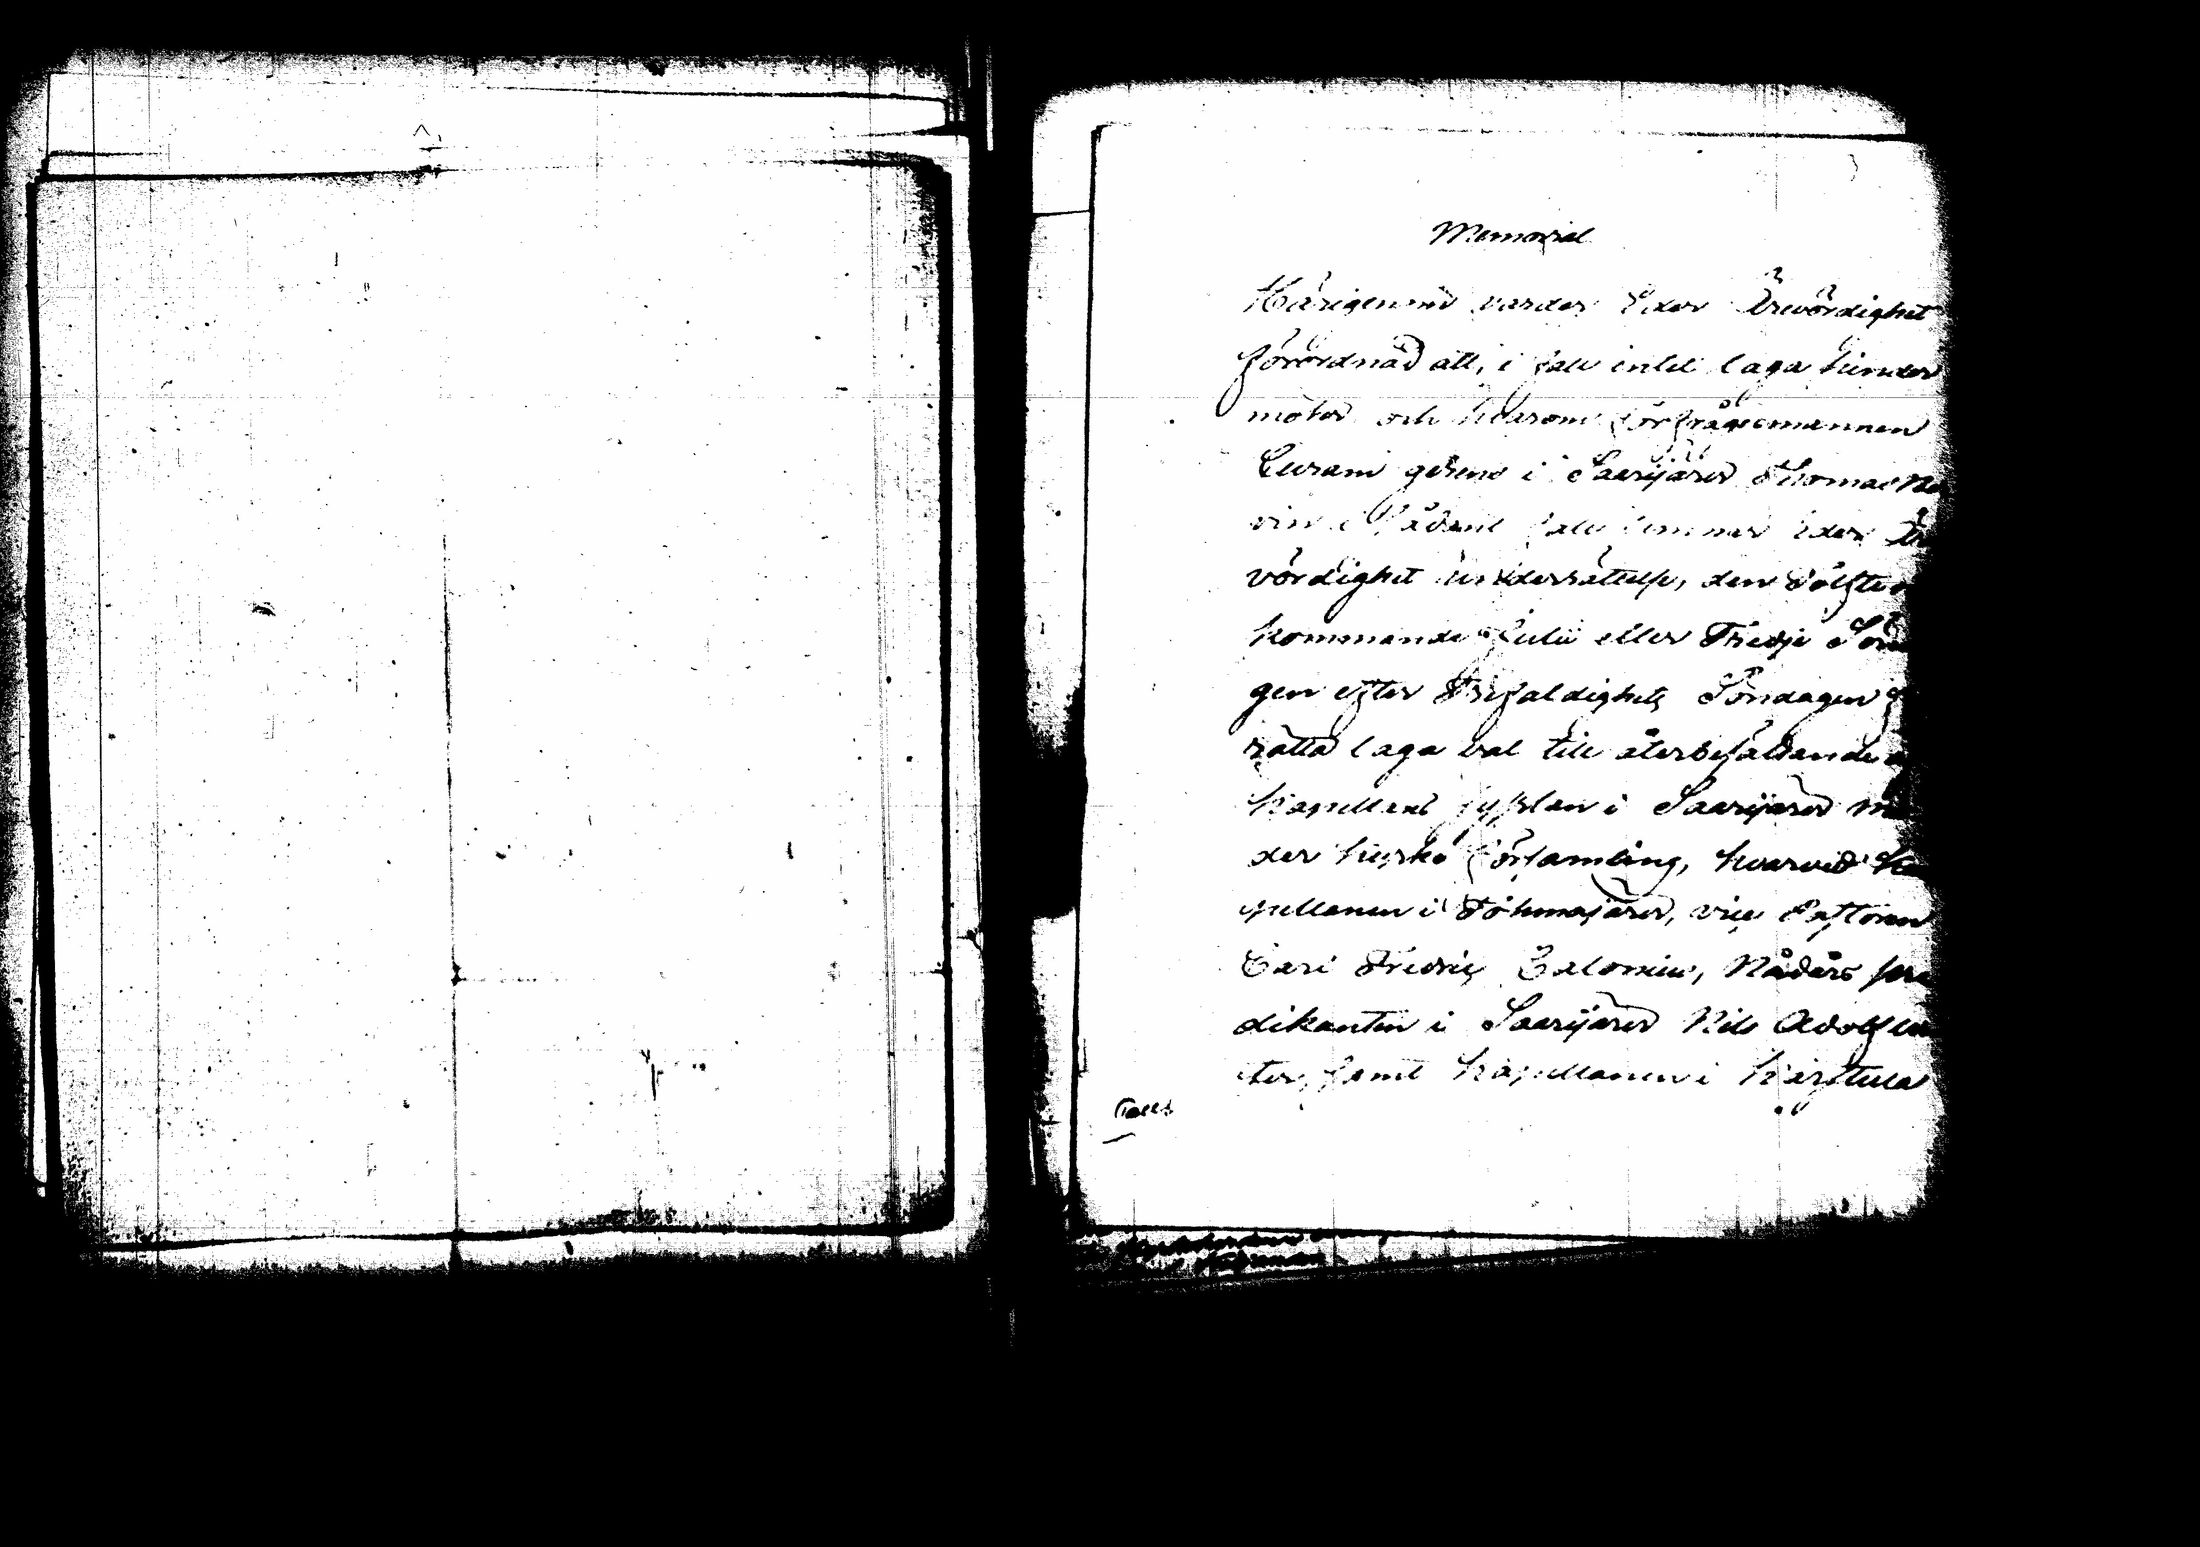 Memorial
Härigenom varder Eder Ärevördighet
förordnad att, i fall intet laga hinder
möter och hvarom förfrågesmannen
Euram gerens i Saarijärvi Thomas
vin i sådant fall lemnar Eder Äre
vördighet underrättelse, den Tolfte
kommande Julii eller Tredje Sönda
gen efter Trefaldighets Söndagen
rätta laga val till återbesättande
Kapellans sysslan i Saarijärvi Mo
der kyrko församling, hvarvid Ka
pellanen i Tohmajärvi, vice Pastorn
Carl Fredric Calonius, Nådårs pre
dikanten i Saarijärvi Nils Adolf
ter, samt Kapellanen i Karstula